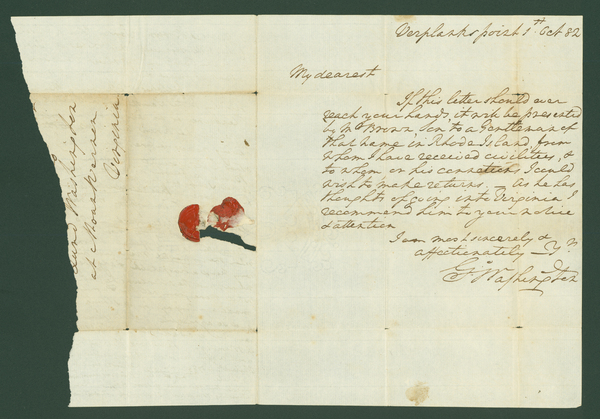 Verplanks point 1st. Oct 82
My dearest
If this letter should ever
reach your hands, it will be presented
by Mr Brown, Son to a Gentleman of
that name in Rhode Island, from
whom I have received civilities, &
to whom or his connections I could
wish to make returns — As he has
thoughts of going into Virginia I
recommend him to your notice
& attention
I am most sincerely &
affectionately — Yrs
Go Washington
Lund Washington
at Mount Vernon
Virginia